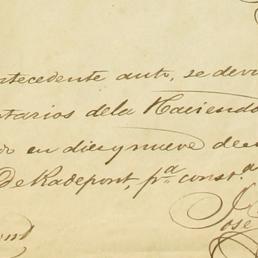 antecedente auto, se devu
tarios dela Hacienda
en diez y nueve de
De Radepont, pa. const.a
Jose